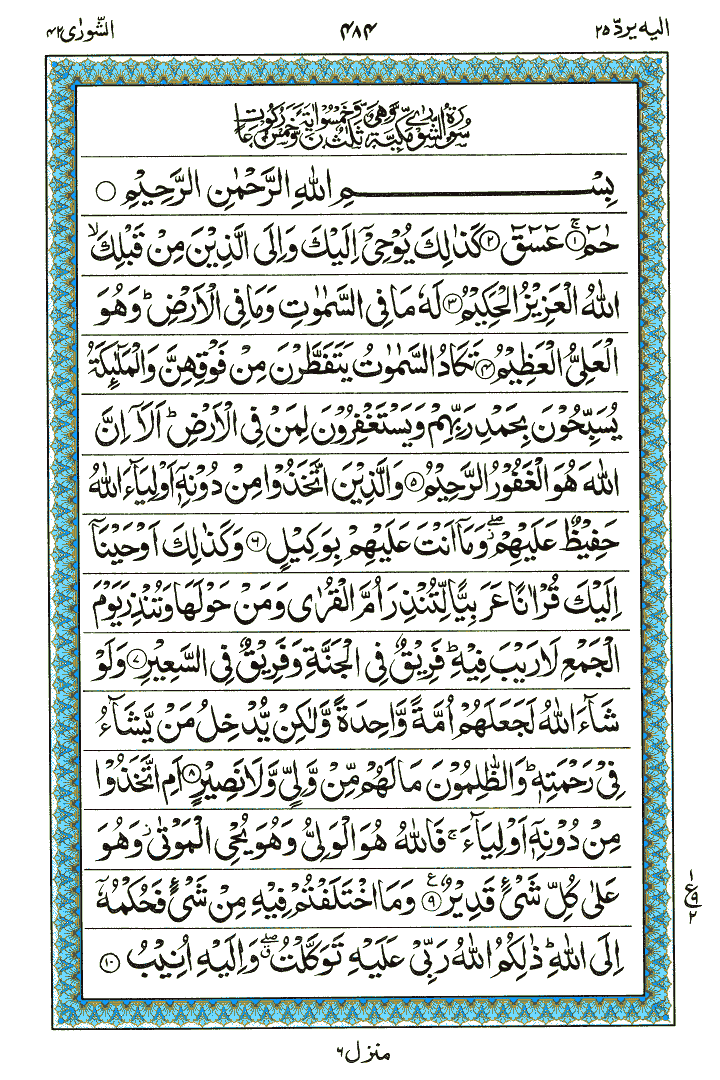 الیه یردّ ۲۵
۴۸۴
الشّورٰی ۴۲
سُوْرَةُ الشُّوْرٰی مَکِّیَّةٌ وَّهِیَ ثَلٰثٌ وَّخَمْسُوْنَ اٰیَةً وَّخَمْسُ رُکُوْعَاتٍ
بِسْــــمِ اللهِ الرَّحْمٰنِ الرَّحِیْمِ ○
حٰمٓ ۚ﴿۱﴾ عٓسٓقٓ ﴿۲﴾ کَذٰلِكَ یُوْحِیْۤ اِلَیْكَ وَاِلَی الَّذِیْنَ مِنْ قَبْلِكَ ۙ
اللهُ الْعَزِیْزُ الْحَکِیْمُ ﴿۳﴾ لَهٗ مَا فِی السَّمٰوٰتِ وَمَا فِی الْاَرْضِ ؕ وَهُوَ
الْعَلِیُّ الْعَظِیْمُ ﴿۴﴾ تَکَادُ السَّمٰوٰتُ یَتَفَطَّرْنَ مِنْ فَوْقِهِنَّ وَالْمَلٰٓئِکَةُ
یُسَبِّحُوْنَ بِحَمْدِ رَبِّهِمْ وَیَسْتَغْفِرُوْنَ لِمَنْ فِی الْاَرْضِ ؕ اَلَاۤ اِنَّ
اللهَ هُوَ الْغَفُوْرُ الرَّحِیْمُ ﴿۵﴾ وَالَّذِیْنَ اتَّخَذُوْا مِنْ دُوْنِهٖۤ اَوْلِیَآءَ اللهُ
حَفِیْظٌ عَلَیْهِمْ ۖ وَمَاۤ اَنْتَ عَلَیْهِمْ بِوَکِیْلٍ ﴿۶﴾ وَکَذٰلِكَ اَوْحَیْنَاۤ
اِلَیْكَ قُرْاٰنًا عَرَبِیًّا لِّتُنْذِرَ اُمَّ الْقُرٰی وَمَنْ حَوْلَهَا وَتُنْذِرَ یَوْمَ
الْجَمْعِ لَا رَیْبَ فِیْهِ ؕ فَرِیْقٌ فِی الْجَنَّةِ وَفَرِیْقٌ فِی السَّعِیْرِ ﴿۷﴾ وَلَوْ
شَآءَ اللهُ لَجَعَلَهُمْ اُمَّةً وَّاحِدَةً وَّلٰکِنْ یُّدْخِلُ مَنْ یَّشَآءُ
فِیْ رَحْمَتِهٖ ؕ وَالظّٰلِمُوْنَ مَا لَهُمْ مِّنْ وَّلِیٍّ وَّلَا نَصِیْرٍ ﴿۸﴾ اَمِ اتَّخَذُوْا
مِنْ دُوْنِهٖۤ اَوْلِیَآءَ ۚ فَاللهُ هُوَ الْوَلِیُّ وَهُوَ یُحْیِ الْمَوْتٰی ؗ وَهُوَ
عَلٰی کُلِّ شَیْءٍ قَدِیْرٌ ﴿۹﴾ ع وَمَا اخْتَلَفْتُمْ فِیْهِ مِنْ شَیْءٍ فَحُکْمُهٗۤ
ع
۱
۹
۲
اِلَی اللهِ ؕ ذٰلِکُمُ اللهُ رَبِّیْ عَلَیْهِ تَوَکَّلْتُ ۖ وَاِلَیْهِ اُنِیْبُ ﴿۱۰﴾
منزل ۶